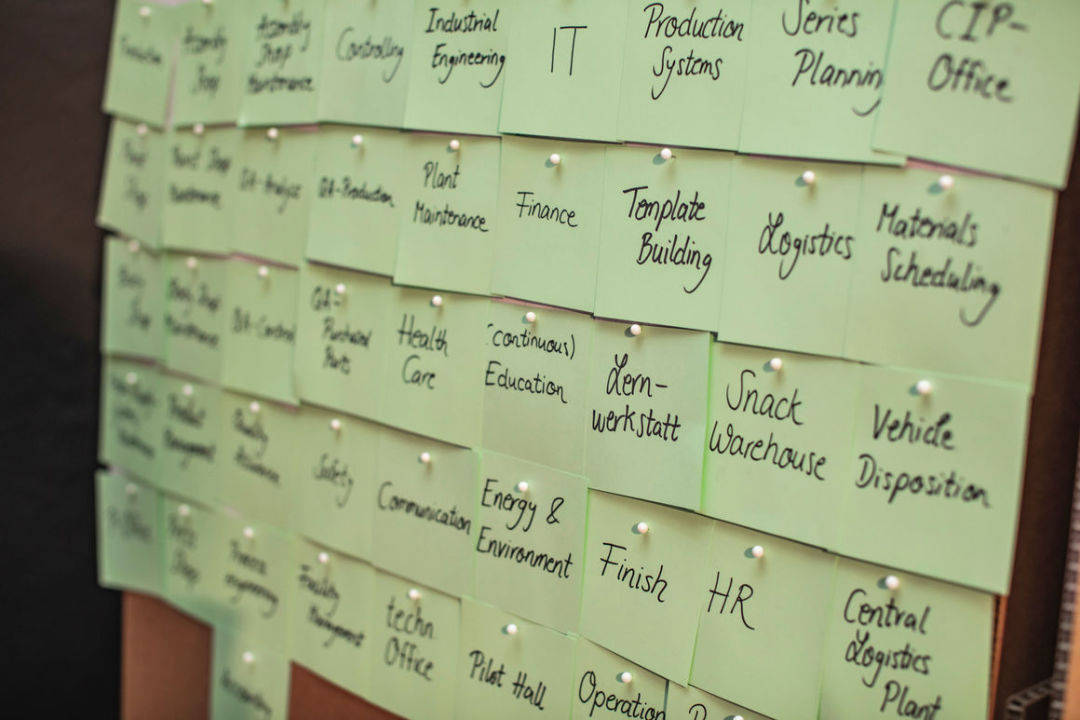 Assembly
Shop
Assembly
Shop
Maintenance
Controlling
Industrial
Engineering
IT
Production
Systems
Series
Planning
CIP-
Office
Paint Shop
Maintenance
QA-Analyse
QA-Production
Plant
Maintenance
Finance
Template
Building
Logistics
Materials
Scheduling
Body
Shop
Body Shop
Maintenance
QA-Central
QA-
Purchased
Parts
Health
Care
(continuous)
Education
Lern-
werkstatt
Snack
Warehouse
Vehicle
Disposition
Product
Management
Quality
Safety
Communication
Energy &
Environment
Finish
HR
Central
Logistics
Plant
Process
Engineering
Facility
Management
techn.
Office
Pilot Hall
Operation